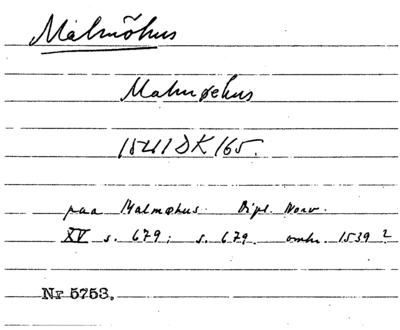 Malmõhus
Malmøehus
1541 DK 165.
paa Malmøhus. Dipl. Norv.
XV s. 679; s. 679. omkr. 1539?
Nr 5753.